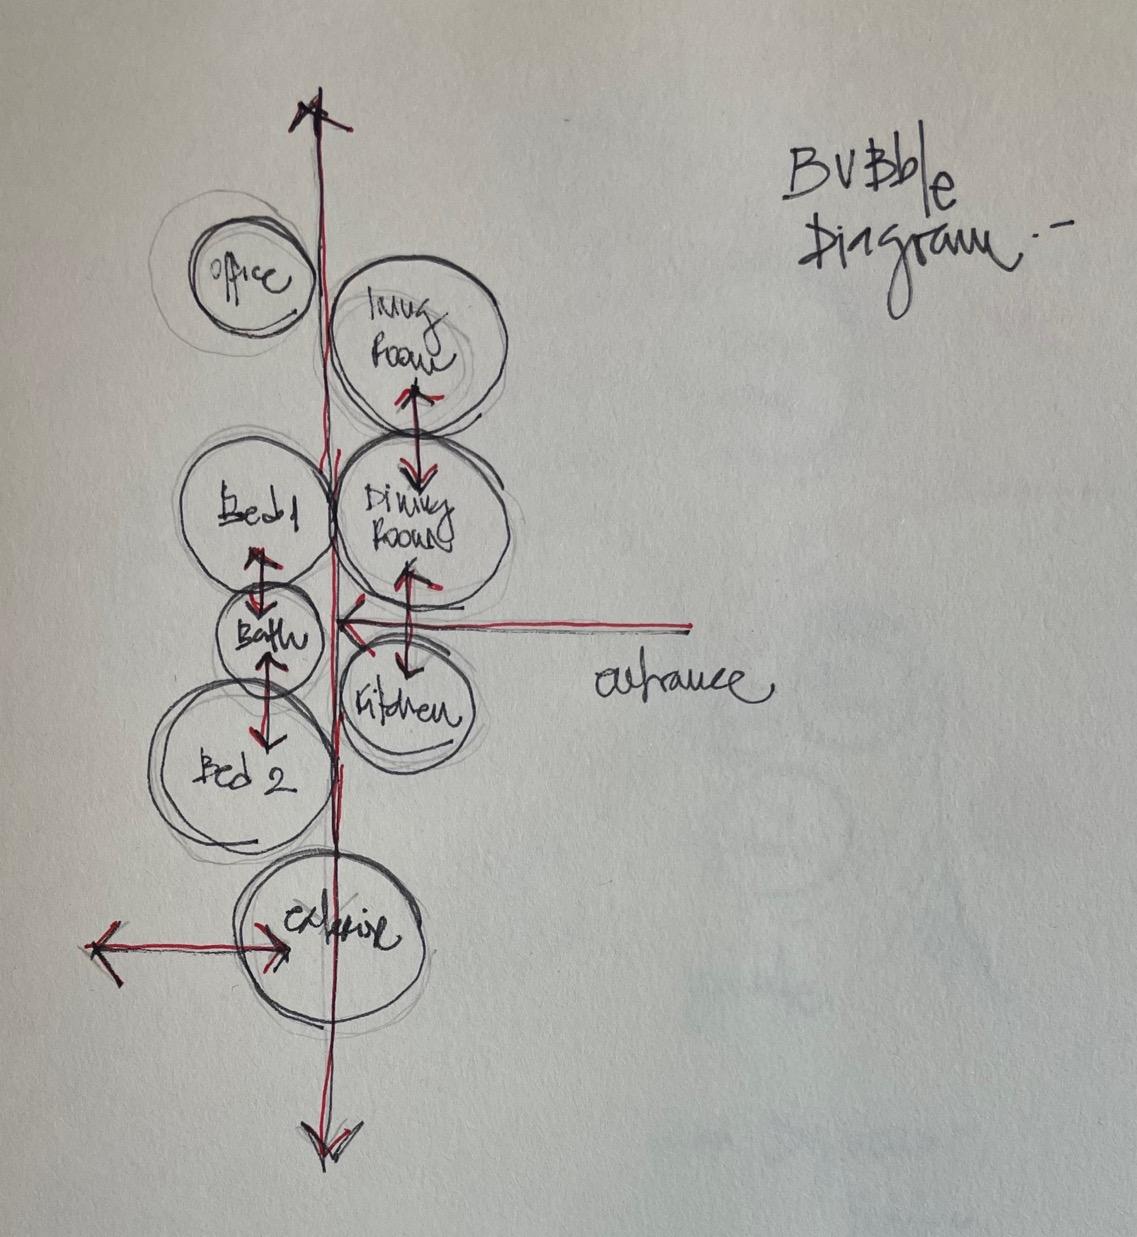 BUBble
Diagram.-
Office
living
Room
Bed 1
Dining
Room
Bath
entrance
Kitchen
Bed 2